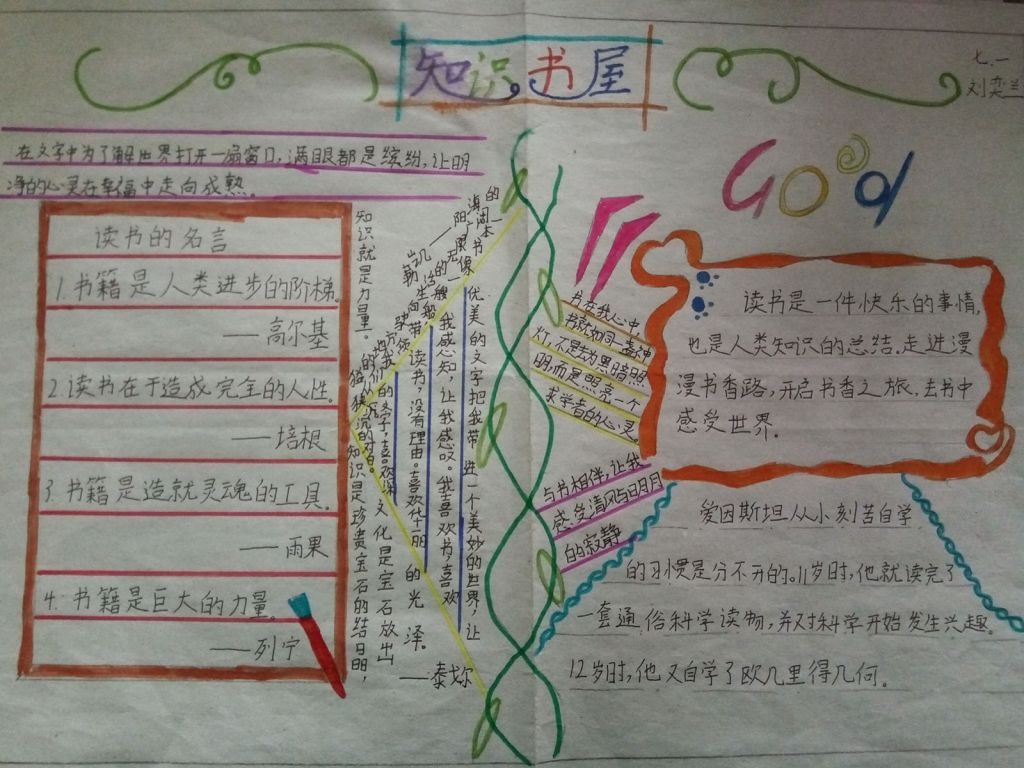 知识书屋
七.一
刘奕兰
在文字中为了解世界打开一扇窗口,满眼都是缤纷,让明
净的心灵在幸福中走向成熟。
读书的名言
1.书籍是人类进步的阶梯。
——高尔基
2.读书在于造成完全的人性。
——培根
3.书籍是造就灵魂的工具。
——雨果
4.书籍是巨大的力量。
——列宁
知识就是力量。
知识是珍贵宝石的结日明,
文化是宝石放出
的光泽。
——泰戈尔
优美的文字把我带进一个美妙的世界,让
我感知,让我感叹。我喜欢书,喜欢
读书,没有理由。喜欢华丽
Good
书在我心中
书就如同一盏神
灯,不是去为黑暗照
明,而是照亮一个
求学者的心灵。
与书相伴,让我
感受清风与日明月
的寂静
读书是一件快乐的事情,
也是人类知识的总结.走进漫
漫书香路,开启书香之旅,去书中
感受世界.
爱因斯坦从小刻苦自学
的习惯是分不开的。11岁时,他就读完了
一套通俗科学读物,并对科学开始发生兴趣。
12岁时,他又自学了欧几里得几何。